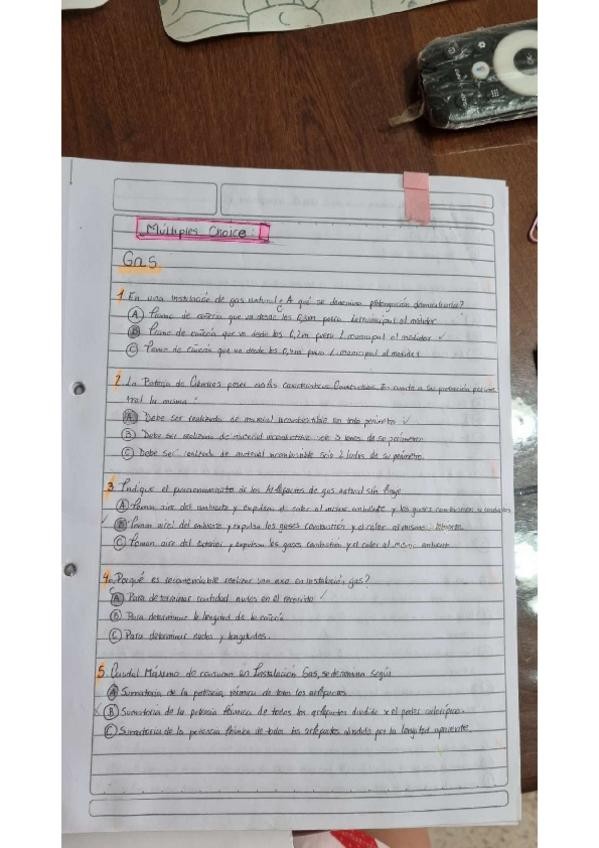 Múltiples Choice:
Gas
1 En una instalación de gas natural ¿A qué se denomina prolongación domiciliaria?
(A) Tramo de cañería que va desde los para L. municipal al medidor
(B) Tramo de cañería que va desde los 0,2m para L. municipal al medidor ✓
(C) Tramo de cañería que va desde los para L. municipal al medidor
2 La Batería de Cilindros posee ciertas características Constructivas En cuanto a su protección perime
tral la misma:
(A) Debe ser realizada de material incombustible en todo perímetro ✓
(B) Debe ser realizada de material incombustible solo 3 lados de su perímetro
(C) Debe ser realizada de material incombustible solo 2 lados de su perímetro.
3 Indique el funcionamiento de los Artefactos de gas natural sin
(A) Toman aire del ambiente y expulsan el calor al mismo ambiente y los gases combustión
(B) Toman aire del ambiente y expulsa los gases combustión y el calor al mismo
(C) Toman aire del exterior y expulsan los gases combustión y el calor al mismo ambiente
4. Porqué es recomendable realizar una axo en instalación gas?
(A) Para determinar cantidad nudos en el recorrido ✓
(B) Para determinar la longitud de la cañería
(C) Para determinar nudos y longitudes.
5. Caudal Máximo de consumo en Instalación Gas, se denomina según
(A) Sumatoria de la potencia térmica de todos los artefactos
(B) Sumatoria de la potencia térmica de todos los artefactos dividido x el poder calorífico.
(C) Sumatoria de la potencia térmica de todos los artefactos dividido por la longitud aparente.